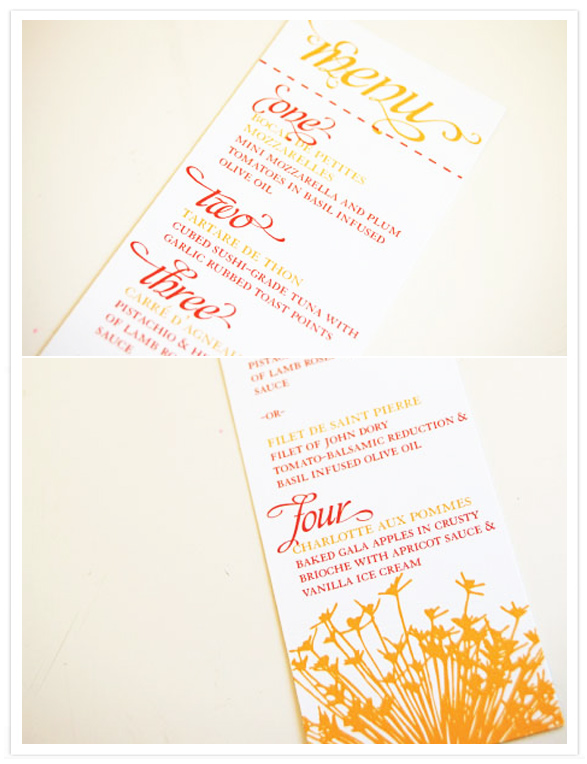 menu
one
BOCAL DE PETITES
MOZZARELLES
MINI MOZZARELLA AND PLUM
TOMATOES IN BASIL INFUSED
OLIVE OIL
two
TARTARE DE THON
CUBED SUSHI-GRADE TUNA WITH
GARLIC RUBBED TOAST POINTS
three
CARRÉ D'AGNEAU
PISTACHIO &
OF LAMB
SAUCE
OF LAMB
SAUCE
-OR-
FILET DE SAINT PIERRE
FILET OF JOHN DORY
TOMATO-BALSAMIC REDUCTION &
BASIL INFUSED OLIVE OIL
four
CHARLOTTE AUX POMMES
BAKED GALA APPLES IN CRUSTY
BRIOCHE WITH APRICOT SAUCE &
VANILLA ICE CREAM